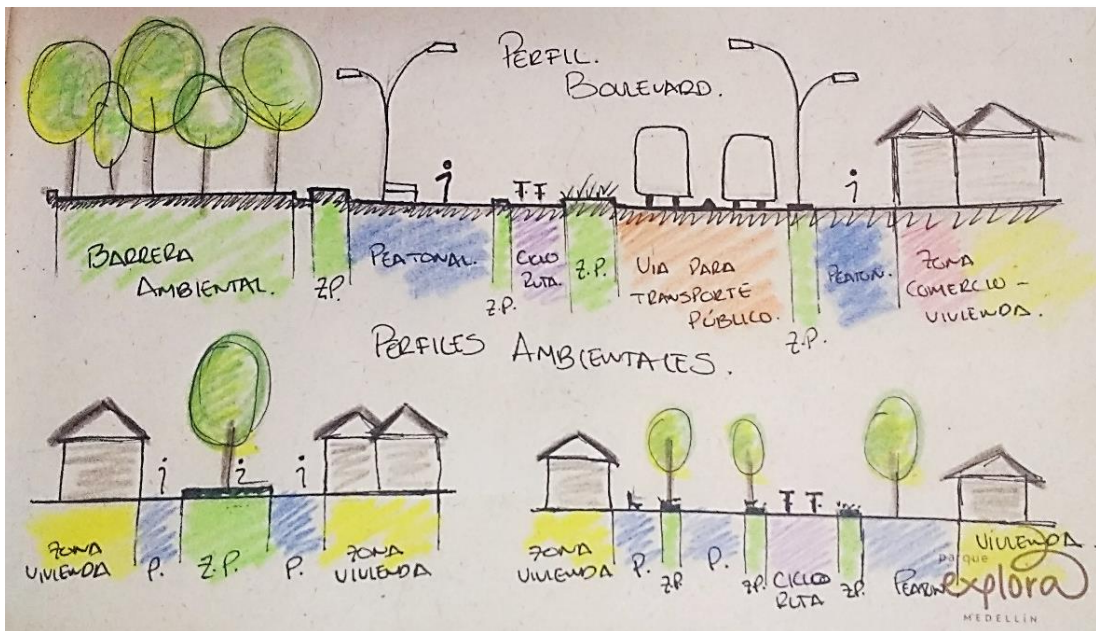 PERFIL.
BOULEVARD.
BARRERA
AMBIENTAL.
Z.P.
PEATONAL.
Z.P.
CICLO
RUTA.
Z.P.
VIA PARA
TRANSPORTE
PÚBLICO.
Z.P.
PEATON.
ZONA
COMERCIO -
VIVIENDA.
PERFILES AMBIENTALES.
ZONA
VIVIENDA
P.
Z.P.
P.
ZONA
VIVIENDA
ZONA
VIVIENDA
P.
Z.P.
P.
Z.P.
CICLO
RUTA
Z.P.
VIVIENDA.
parque
explora
MEDELLÍN